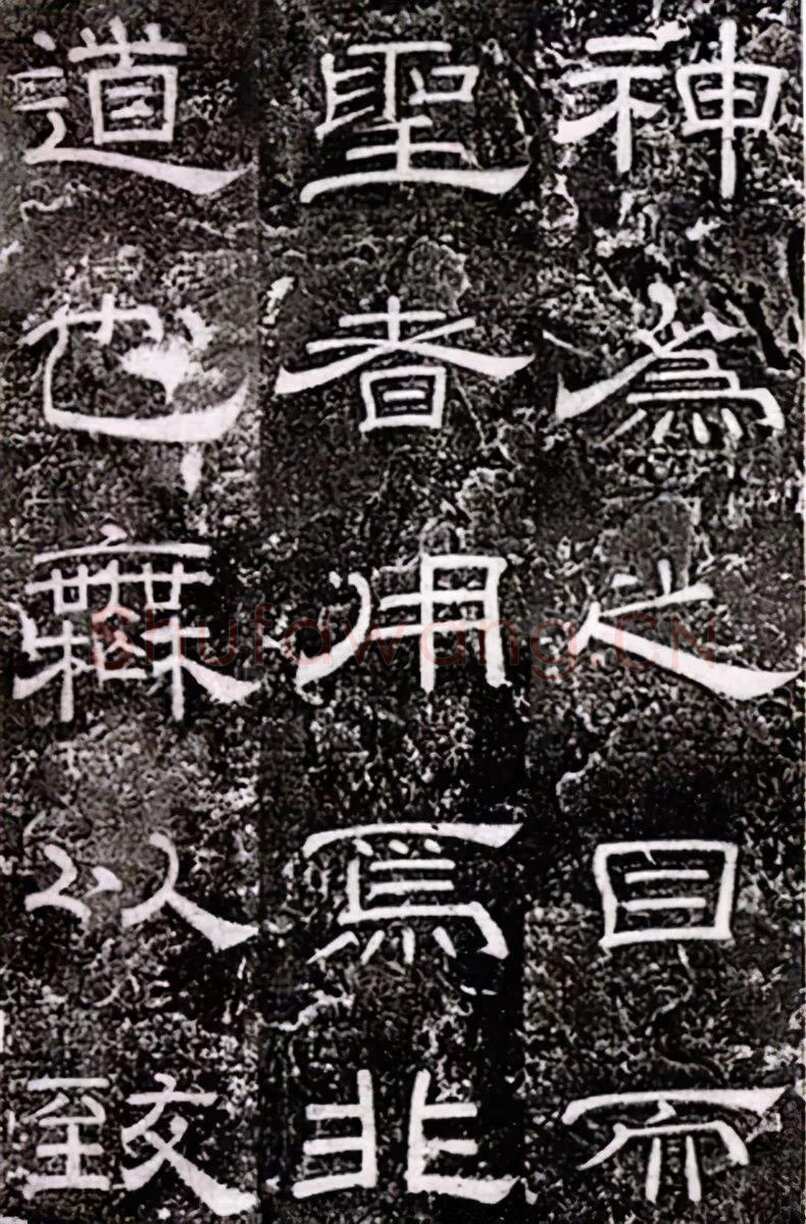 神為之目而
聖者用焉非
道也無以致
Shufawang.CN